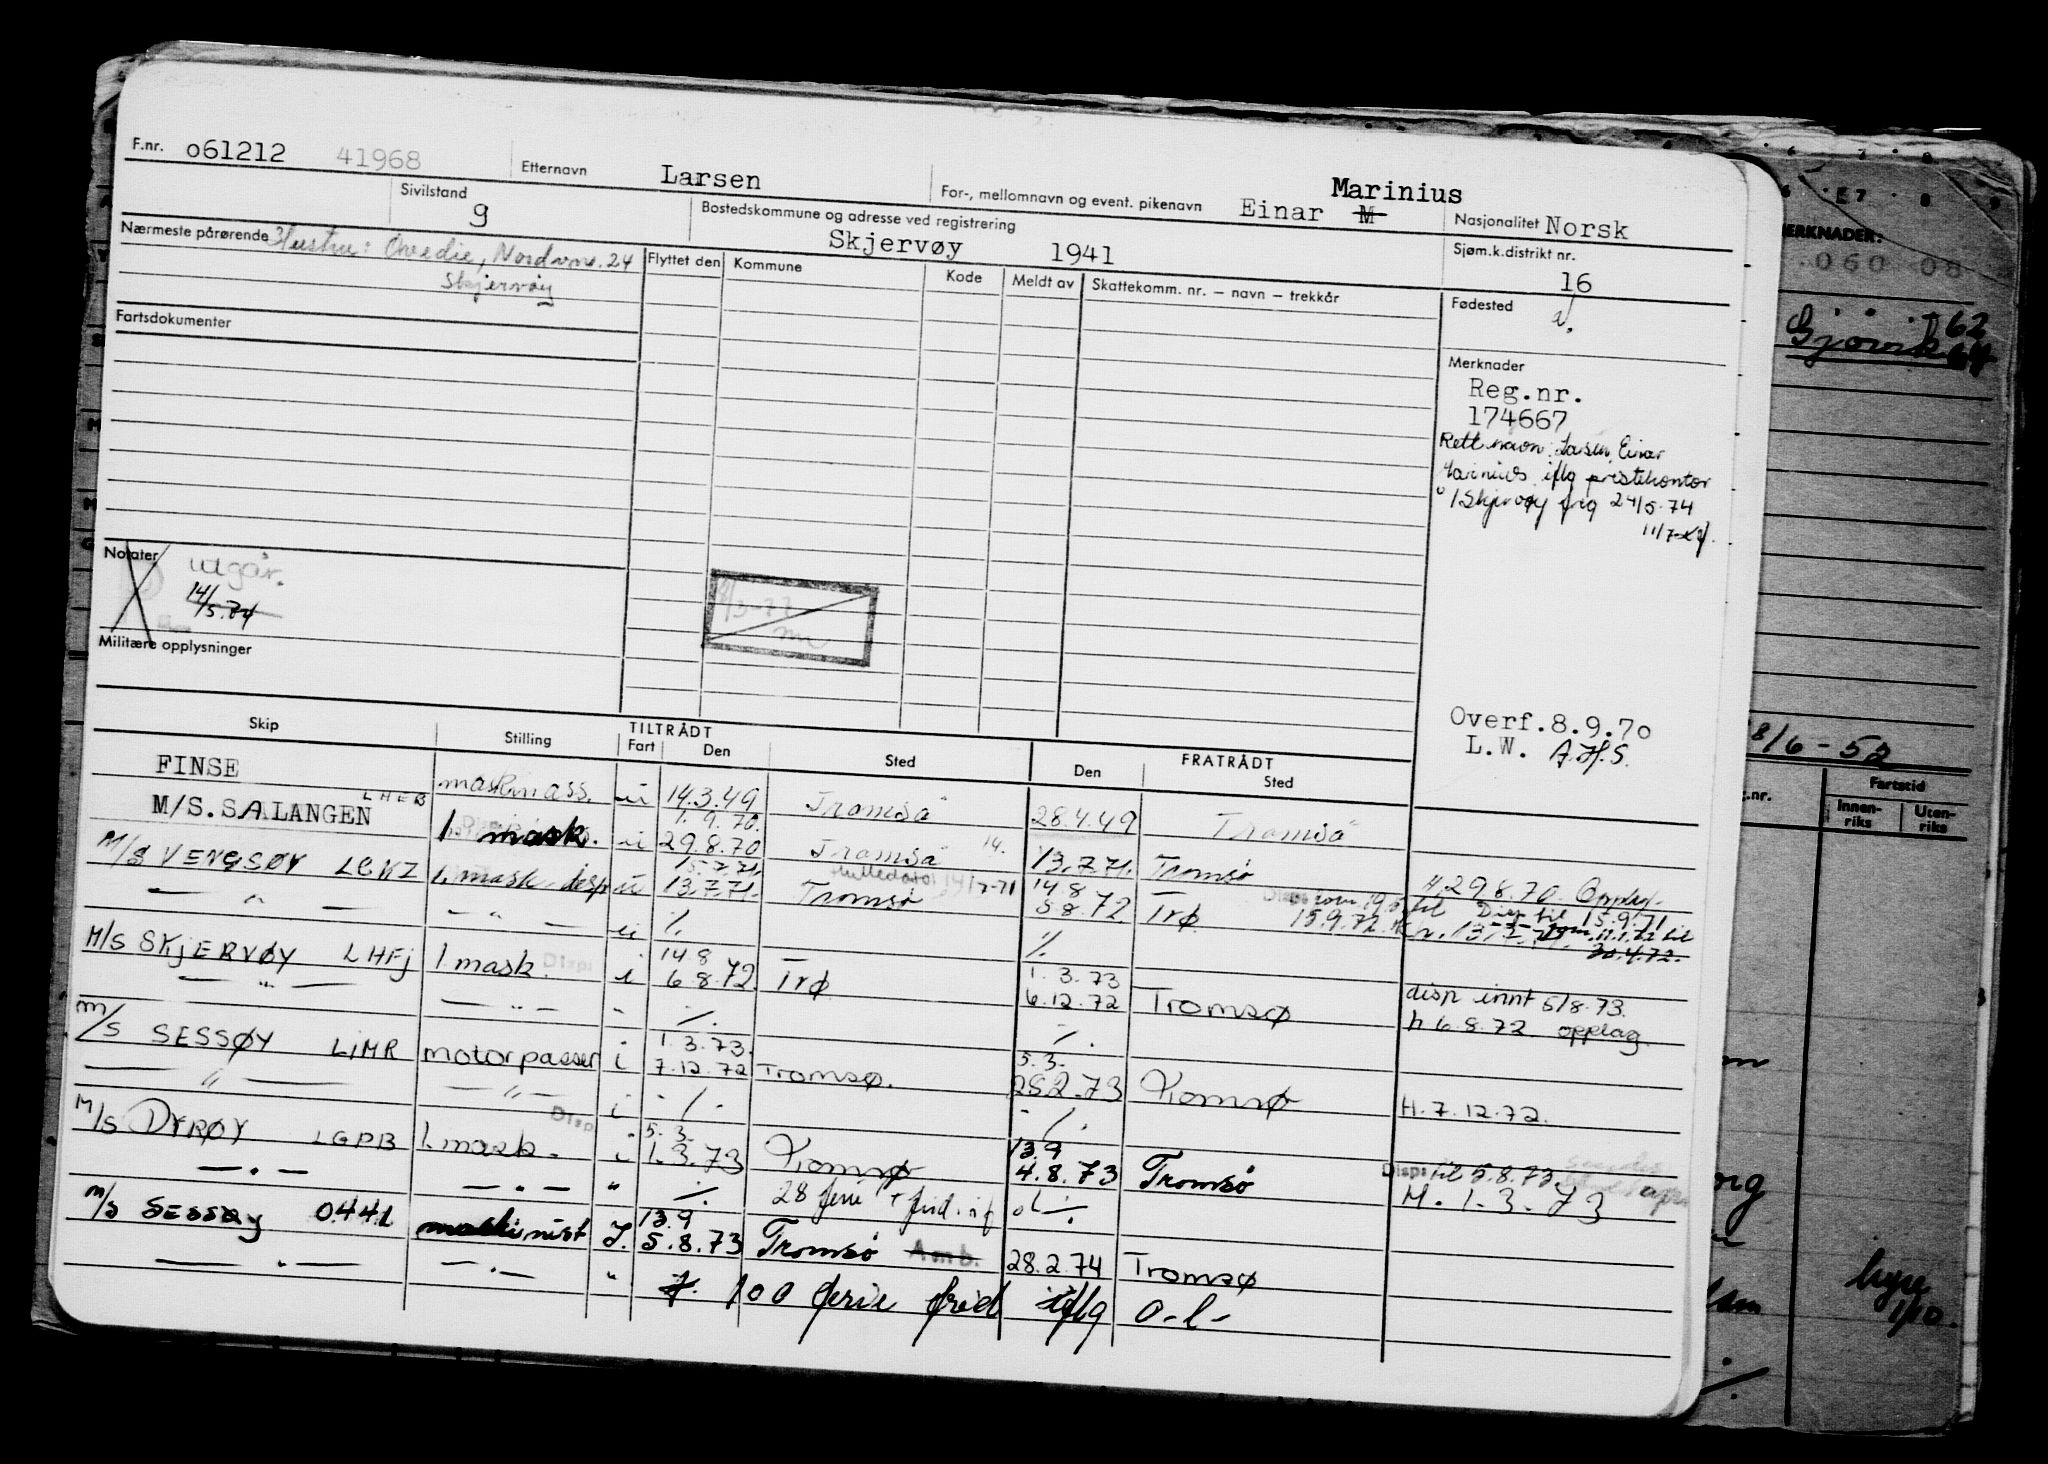 F.nr. 061212 41968 Etternavn Larsen For-, mellomnavn og event. pikenavn Einar M Marinius Nasjonalitet Norsk
Sivilstand g Bostedskommune og adresse ved registrering Skjervøy 1941 Sjøm.k.distrikt nr. 16
Nærmeste pårørende Hustru: Ovedie, Nordvn. 24
Skjervøy
Flyttet den Kommune Kode Meldt av Skattekomm. nr. – navn – trekkår
Fødested
Fartsdokumenter
Merknader
Reg.nr.
174667
Rett navn: Larsen, Einar
Marinius iflg prestekontor
i Skjervøy frg 24/5-74
Notater utgår.
14/5.74
Militære opplysninger
Overf.8.9.70
L.W. A.H.S.
Skip Stilling TILTRÅDT Fart Den Sted FRATRÅDT Den Sted
FINSE maskinass. u 14.3.49 Tromsø 28.4.49 Tromsø
M/S.SALANGEN LHEB 1 mask. u 1.9.70. 29.8.70 Tromsø 13.7.71. Tromsø H 29.8.70. Oppl.
M/S VENGSØY LGKZ 1. mask. disp u 15.7.71. 13.7.71. Tromsø 14.8 5.8.72 Trø 15.9.72 Disp til 15.9.71
— " — — " — u ·/. ·/. 30.4.72.
M/S SKJERVØY LHFJ 1 mask. Disp i 14.8 6.8.72 Trø 1.3.73 6.12.72 Tromsø disp innt 5/8.73. h 6.8.72 opplag.
— " — — " — " ·/. ·/.
M/S SESSØY LIMR motorpasser i 1.3.73. 7.12.72 Tromsø. 5.3. 28.2.73 Tromsø H. 7.12.72.
— " — — " — i ·/. ·/.
M/S DYRØY LGPB 1. mask. Disp i 5.3. 1.3.73 Tromsø 13.9 4.8.73 Tromsø Disp: til 5.8.73. M. 1.3.73
— " — — " — " ·/. 28 ferie + frid. ifl. o.l. ·/.
M/S SESSØY 0441 maskinist I. 13.9 5.8.73 Tromsø Amb. 28.2.74 Tromsø
— " — — " — " + 100 ferie frid iflg o-l-
MERKNADER:
060 08
Gjøvik 62
64
8/6-52
Fartstid
Innen-
riks
Uten-
riks
hyre
1/10.